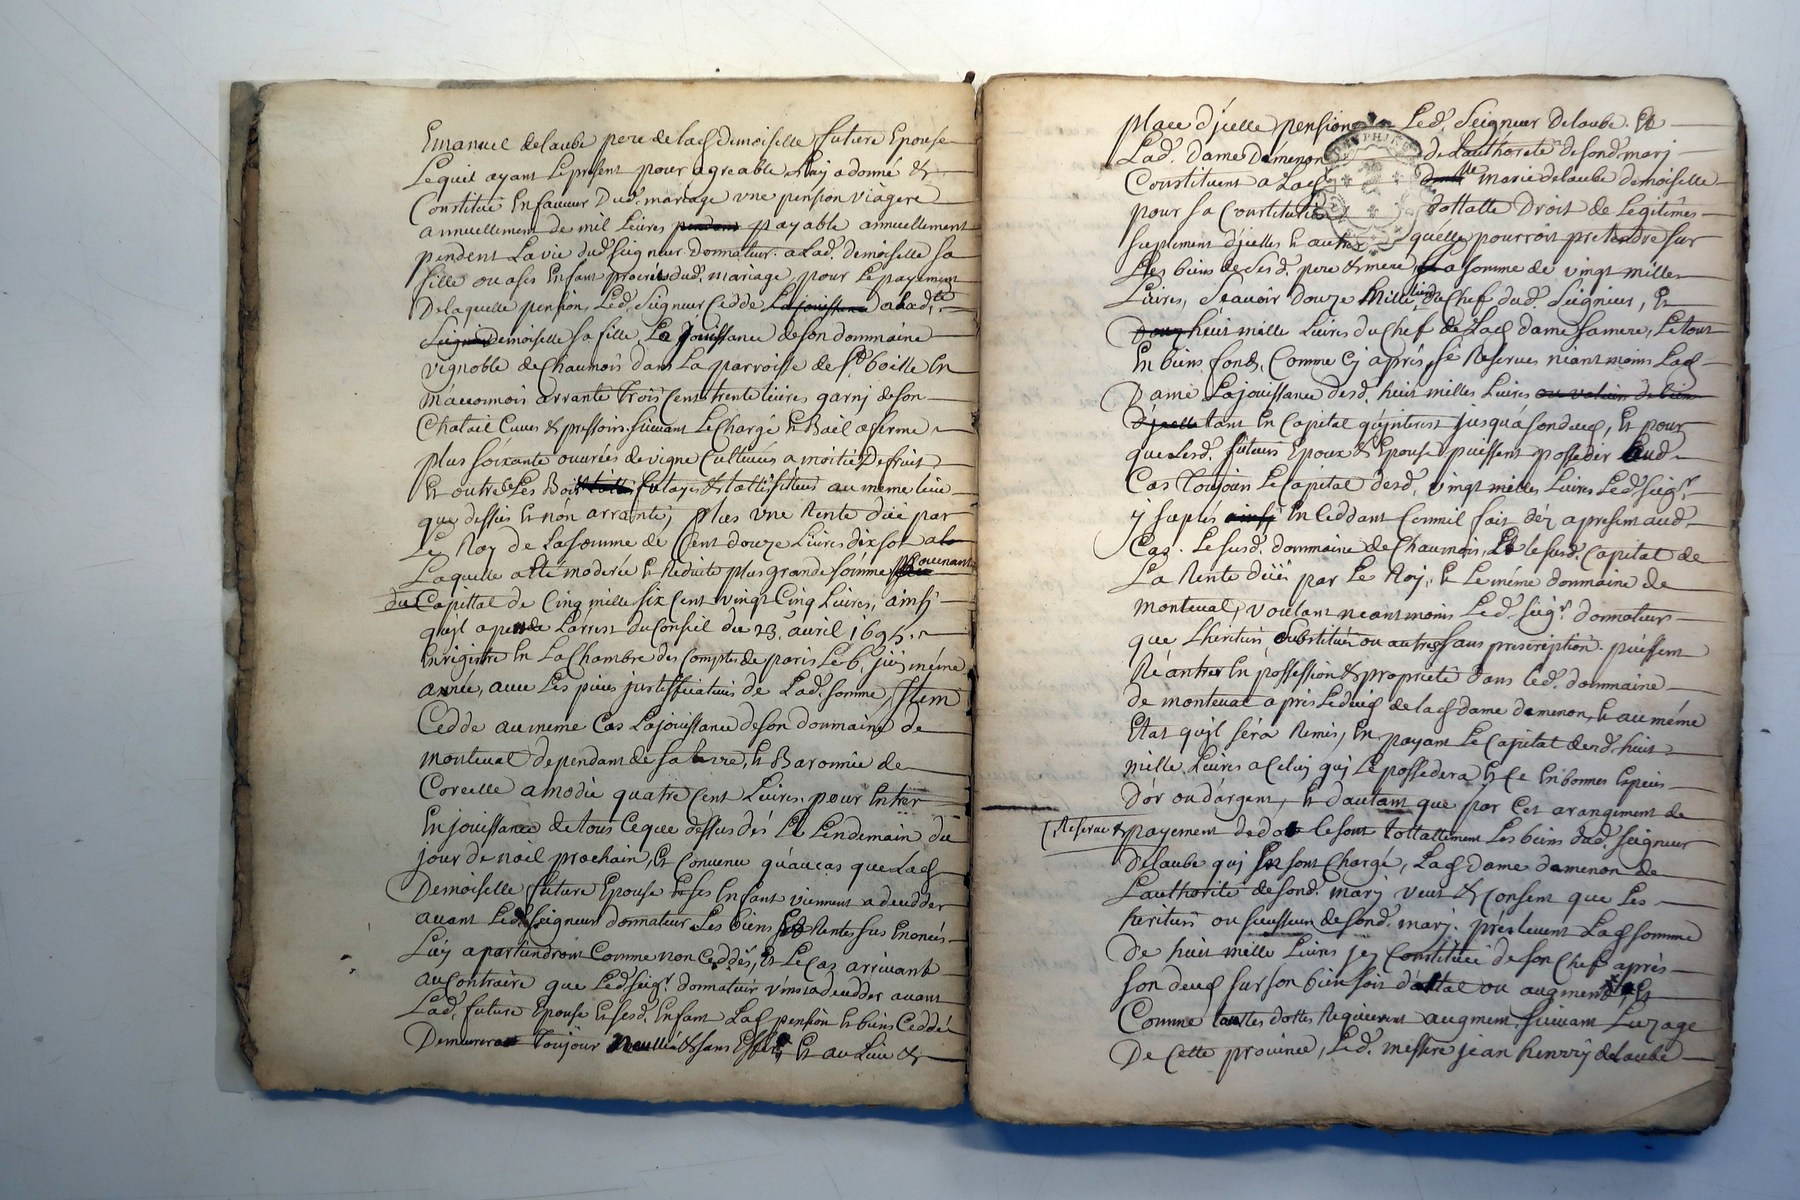 Emanuel delaube pere de lad demoiselle future Epouse
Lequel ayant Le present pour agreable Luy a donné &
Constitué En faueur Dud. mariage vne pension viagere
annuellement de mil Liures payable annuellement
pendent La vie dud seigneur donnateur a Lad. demoiselle sa
fille ou a ses Enfant procréés dud. mariage, pour Le payement
De laquelle pension, Led. Seigneur Cedde La jouissance a Lad.te
Demoiselle sa fille, La jouissance de son dommaine
vignoble de Chaumois dans La parroisse de St boille En
mâconnois arranté Trois Cent trente liures garnj de son
Chatail Cuues & pressoirs suiuant Le Charge & Bail a ferme
plus soixante ouurées de vigne Cultiués a moitié De fruit
Et outre Les Bois futayes & taillis situés au meme lieu
que dessus & non arranté, plus vne Rente düe par
Le Roy de La somme de Cent douze Liures dix sol
Laquelle a été moderée & Reduite plus grande somme prouenant
du Capittal de Cinq mille six Cent vingt Cinq Liures, ainsj
qu'jl a pende L'arrest du Conseil du 23. auril 1695.
Enrigistre En La Chambre des Comptes de paris Le 6, juj méme
année, auec Les pieces justifficatiues de Lad. somme, Jtem
Cedde au meme Cas La jouissance de son dommaine de
monteual dependant de sa terre, & Baronnie de
Corcelle amodié quatre Cent Liures, pour Entrer
En jouissance de tous Ce que dessus dés Le Lendemain du
jour de noël prochain, Et Conuenu qu'au cas que Lad
Demoiselle future Epouse & ses Enfant viennent a decedder
auant Led. seigneur donnateur Les biens & Rentes sus Enoncés
Luy apartiendront Comme non Ceddés, Et Le Cas arriuant
au Contraire que Led. seigr. donnateur vint a decedder auant
Lad. future Epouse & sesd. Enfant Lad pension & biens Ceddé
Demeurera Toujour Nulle & sans Effet, Et au Lieu &
place d'jcelle pension Led. Seigneur Delaube Et
Lad. Dame Démenon de L'authorité de sond. marj
Constituent a Lad lle marie delaube demoiselle
pour sa Constitution dottalle Droit de Legitimes
suplement d'jcelles & autre quelle pourroit pretendre sur
Les biens de sesd. pere & mere La somme de vingt milles
Liures, scauoir douze mille liures du Chef dud. Seigneur, Et
huit mille Liures du Chef de Lad dame sa mere, Le tout
En biens fonds, Comme Cj aprés, se Reserues néantmoins Lad
Dame La jouissance desd. huit milles Liures ou valeur de biens
d'jcelle tant En Capital qu'jnterest jusqu'a son deced, Et pour
que Lesd. futurs Epoux & Epouse puissent posseder aud.
Cas Toujours Le Capital desd. vingt milles Liures Led. seigr.
y suplée ainsj En Ceddant Comme il fait déz a present aud.
Cas. Le susd. dommaine de Chaumois, Et le susd. Capital de
La Rente düe par Le Roj, & Le méme dommaine de
monteual, voulant neantmoins Led. seigr. donnateur
que L'heritier, Substitués ou autres sans prescription puissent
Réantrer En possession & proprieté dans Led. dommaine
de monteual aprés Le deced de lad dame demenon, & au méme
Etat qu'jl sera Remis, En payant Le Capital desd. huit
mille Liures a Celuy quj Le possedera & Ce En bonnes Especes
d'or ou d'argent, & d'autant que par Cet arangement de
Reserue & payement de dot Le sont tottallement Les biens dud. seigneur
Delaube quj En sont Chargé, Lad dame demenon de
L'authorité de sond. marj veut & Consent que Les
heritiers ou successeurs de sond. marj. préleuent Lad somme
De huit mille Liures jcy Constituée de son Chef aprés
son deced sur son bien soit dottal ou augment, Et
Comme toutes dottes Requierent augment, suiuant L'uzage
De Cette prouince, Led. messire jean henrry delaube